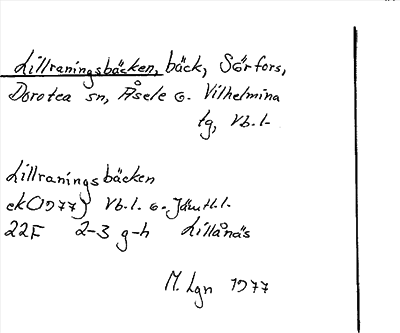 Lillraningsbäcken, bäck, Sörfors,
Dorotea sn, Åsele o. Vilhelmina
tg, Vb.l.
Lillraningsbäcken
ek(1977) Vb.l. o. Jämtl.l.
22F 2-3 g-h Lillånäs
M. Lgn 1977